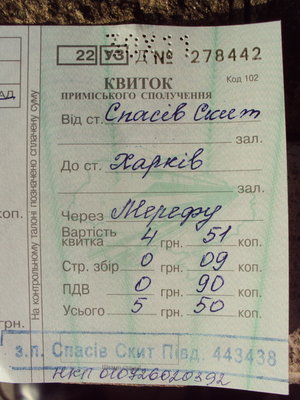 22 УЗ Т № 278442
КВИТОК Код 102
ПРИМІСЬКОГО СПОЛУЧЕННЯ
Від ст. Спасів Скит
зал.
До ст. Харків
зал.
Через Мерефу
Вартість
квитка 4 грн. 51 коп.
Стр. збір 0 грн. 09 коп.
ПДВ 0 грн. 90 коп.
Усього 5 грн. 50 коп.
з.п. Спасів Скит Півд. 443438
НКП 010726020392
На контрольному талоні позначено сплачену суму
АД
коп.
грн.